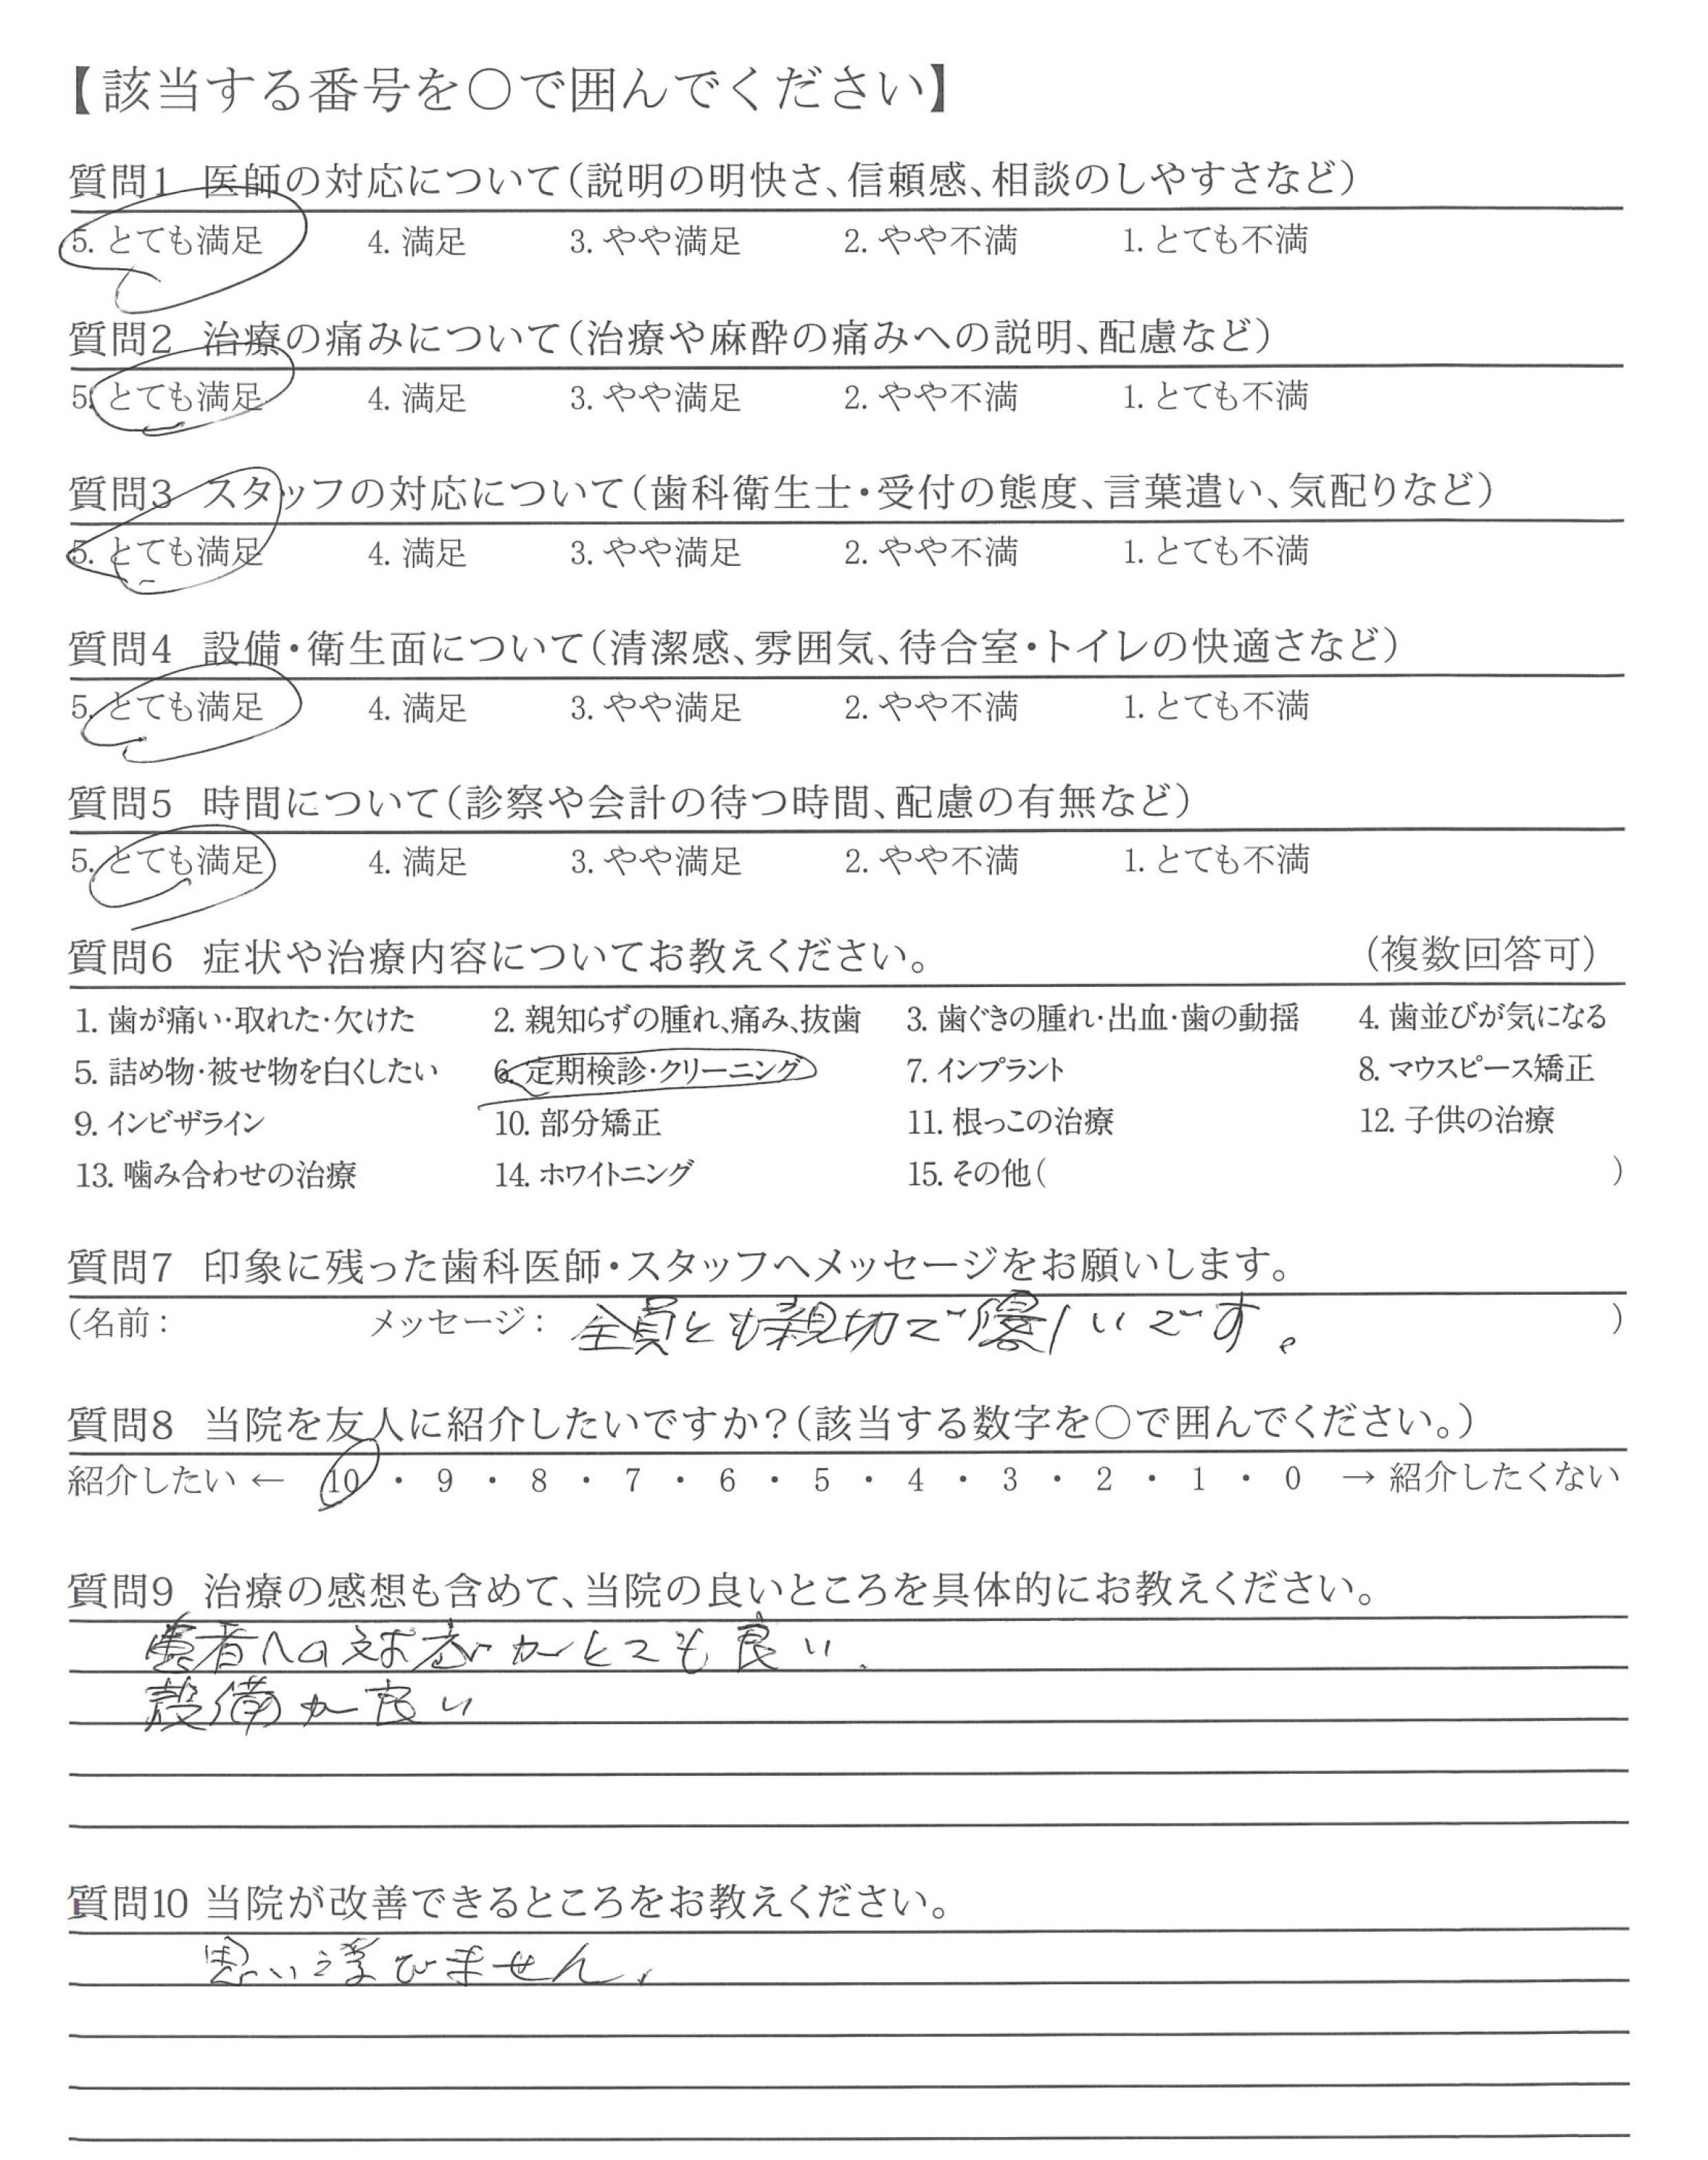 【該当する番号を〇で囲んでください】
質問1 医師の対応について(説明の明快さ、信頼感、相談のしやすさなど)
5. とても満足 4. 満足 3. やや満足 2. やや不満 1. とても不満
質問2 治療の痛みについて(治療や麻酔の痛みへの説明、配慮など)
5. とても満足 4. 満足 3. やや満足 2. やや不満 1. とても不満
質問3 スタッフの対応について(歯科衛生士・受付の態度、言葉遣い、気配りなど)
5. とても満足 4. 満足 3. やや満足 2. やや不満 1. とても不満
質問4 設備・衛生面について(清潔感、雰囲気、待合室・トイレの快適さなど)
5. とても満足 4. 満足 3. やや満足 2. やや不満 1. とても不満
質問5 時間について(診察や会計の待つ時間、配慮の有無など)
5. とても満足 4. 満足 3. やや満足 2. やや不満 1. とても不満
質問6 症状や治療内容についてお教えください。 (複数回答可)
1. 歯が痛い・取れた・欠けた 2. 親知らずの腫れ、痛み、抜歯 3. 歯ぐきの腫れ・出血・歯の動揺 4. 歯並びが気になる
5. 詰め物・被せ物を白くしたい 6. 定期検診・クリーニング 7. インプラント 8. マウスピース矯正
9. インビザライン 10. 部分矯正 11. 根っこの治療 12. 子供の治療
13. 噛み合わせの治療 14. ホワイトニング 15. その他( )
質問7 印象に残った歯科医師・スタッフへメッセージをお願いします。
(名前: メッセージ: 全員とも親切で優しいです。 )
質問8 当院を友人に紹介したいですか?(該当する数字を〇で囲んでください。)
紹介したい ← 10 ・ 9 ・ 8 ・ 7 ・ 6 ・ 5 ・ 4 ・ 3 ・ 2 ・ 1 ・ 0 → 紹介したくない
質問9 治療の感想も含めて、当院の良いところを具体的にお教えください。
患者への対応がとても良い.
設備が良い
質問10 当院が改善できるところをお教えください。
思い浮びません.